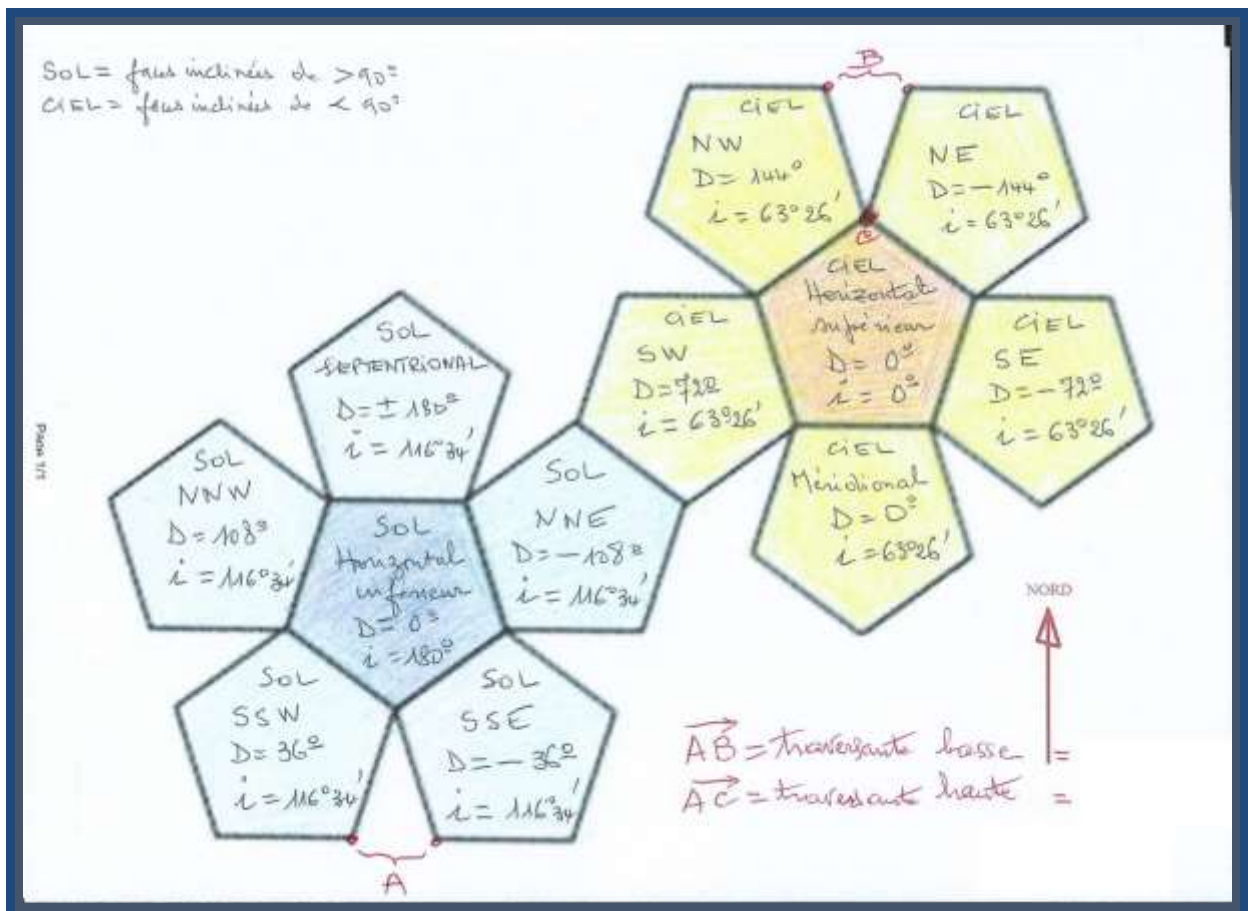 SOL = faces inclinées de >90°
CIEL = faces inclinées de < 90°
B
CIEL
NW
D = 144°
i = 63°26'
CIEL
NE
D = -144°
i = 63°26'
C
CIEL
Horizontal
supérieur
D = 0°
i = 0°
CIEL
SW
D = 72°
i = 63°26'
CIEL
SE
D = -72°
i = 63°26'
CIEL
Méridional
D = 0°
i = 63°26'
SOL
SEPTENTRIONAL
D = ± 180°
i = 116°34'
SOL
NNW
D = 108°
i = 116°34'
SOL
NNE
D = -108°
i = 116°34'
SOL
Horizontal
inférieur
D = 0°
i = 180°
SOL
SSW
D = 36°
i = 116°34'
SOL
SSE
D = -36°
i = 116°34'
A
Page 1/1
NORD
AB = traversante basse =
AC = traversante haute =